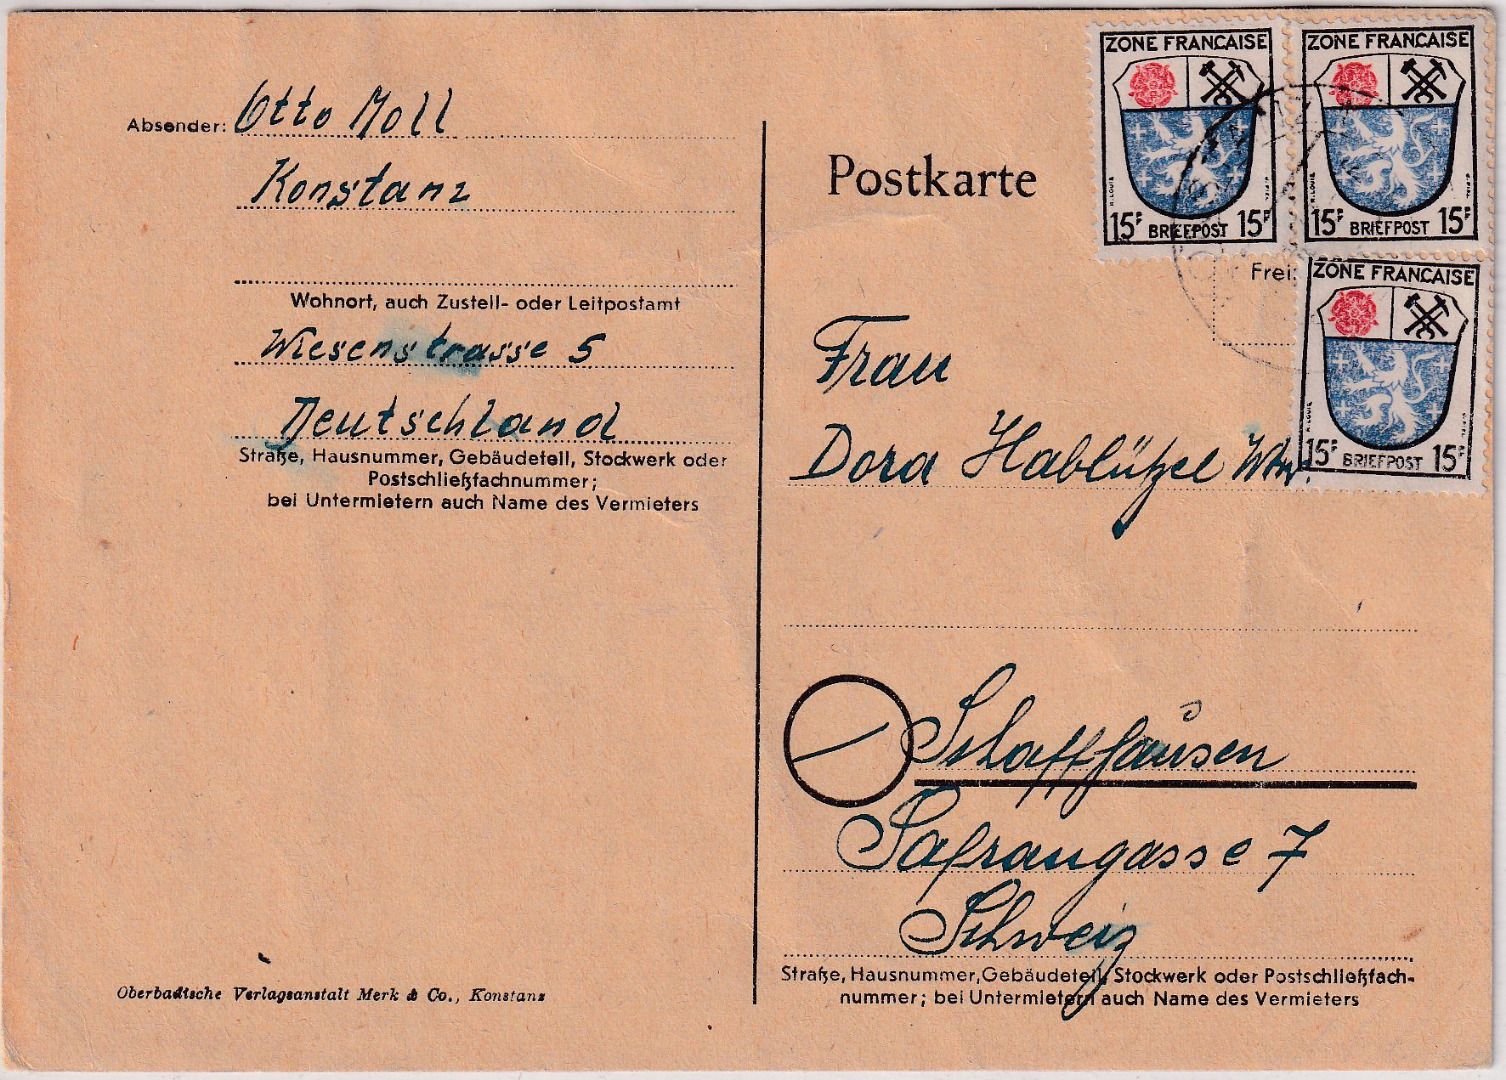 Absender: Otto Moll
Konstanz
Wohnort, auch Zustell- oder Leitpostamt
Wiesenstrasse 5
Deutschland
Straße, Hausnummer, Gebäudeteil, Stockwerk oder
Postschließfachnummer;
bei Untermietern auch Name des Vermieters
Oberbadische Verlagsanstalt Merk & Co., Konstanz
Postkarte
ZONE FRANCAISE
15F BRIEFPOST 15F
ZONE FRANCAISE
15F BRIEFPOST 15F
Frei:
ZONE FRANCAISE
15F BRIEFPOST 15F
Frau
Dora Hablützel Wtw.
Schaffhausen
Safrangasse 7
Schweiz
Straße, Hausnummer, Gebäudeteil, Stockwerk oder Postschließfach-
nummer; bei Untermietern auch Name des Vermieters